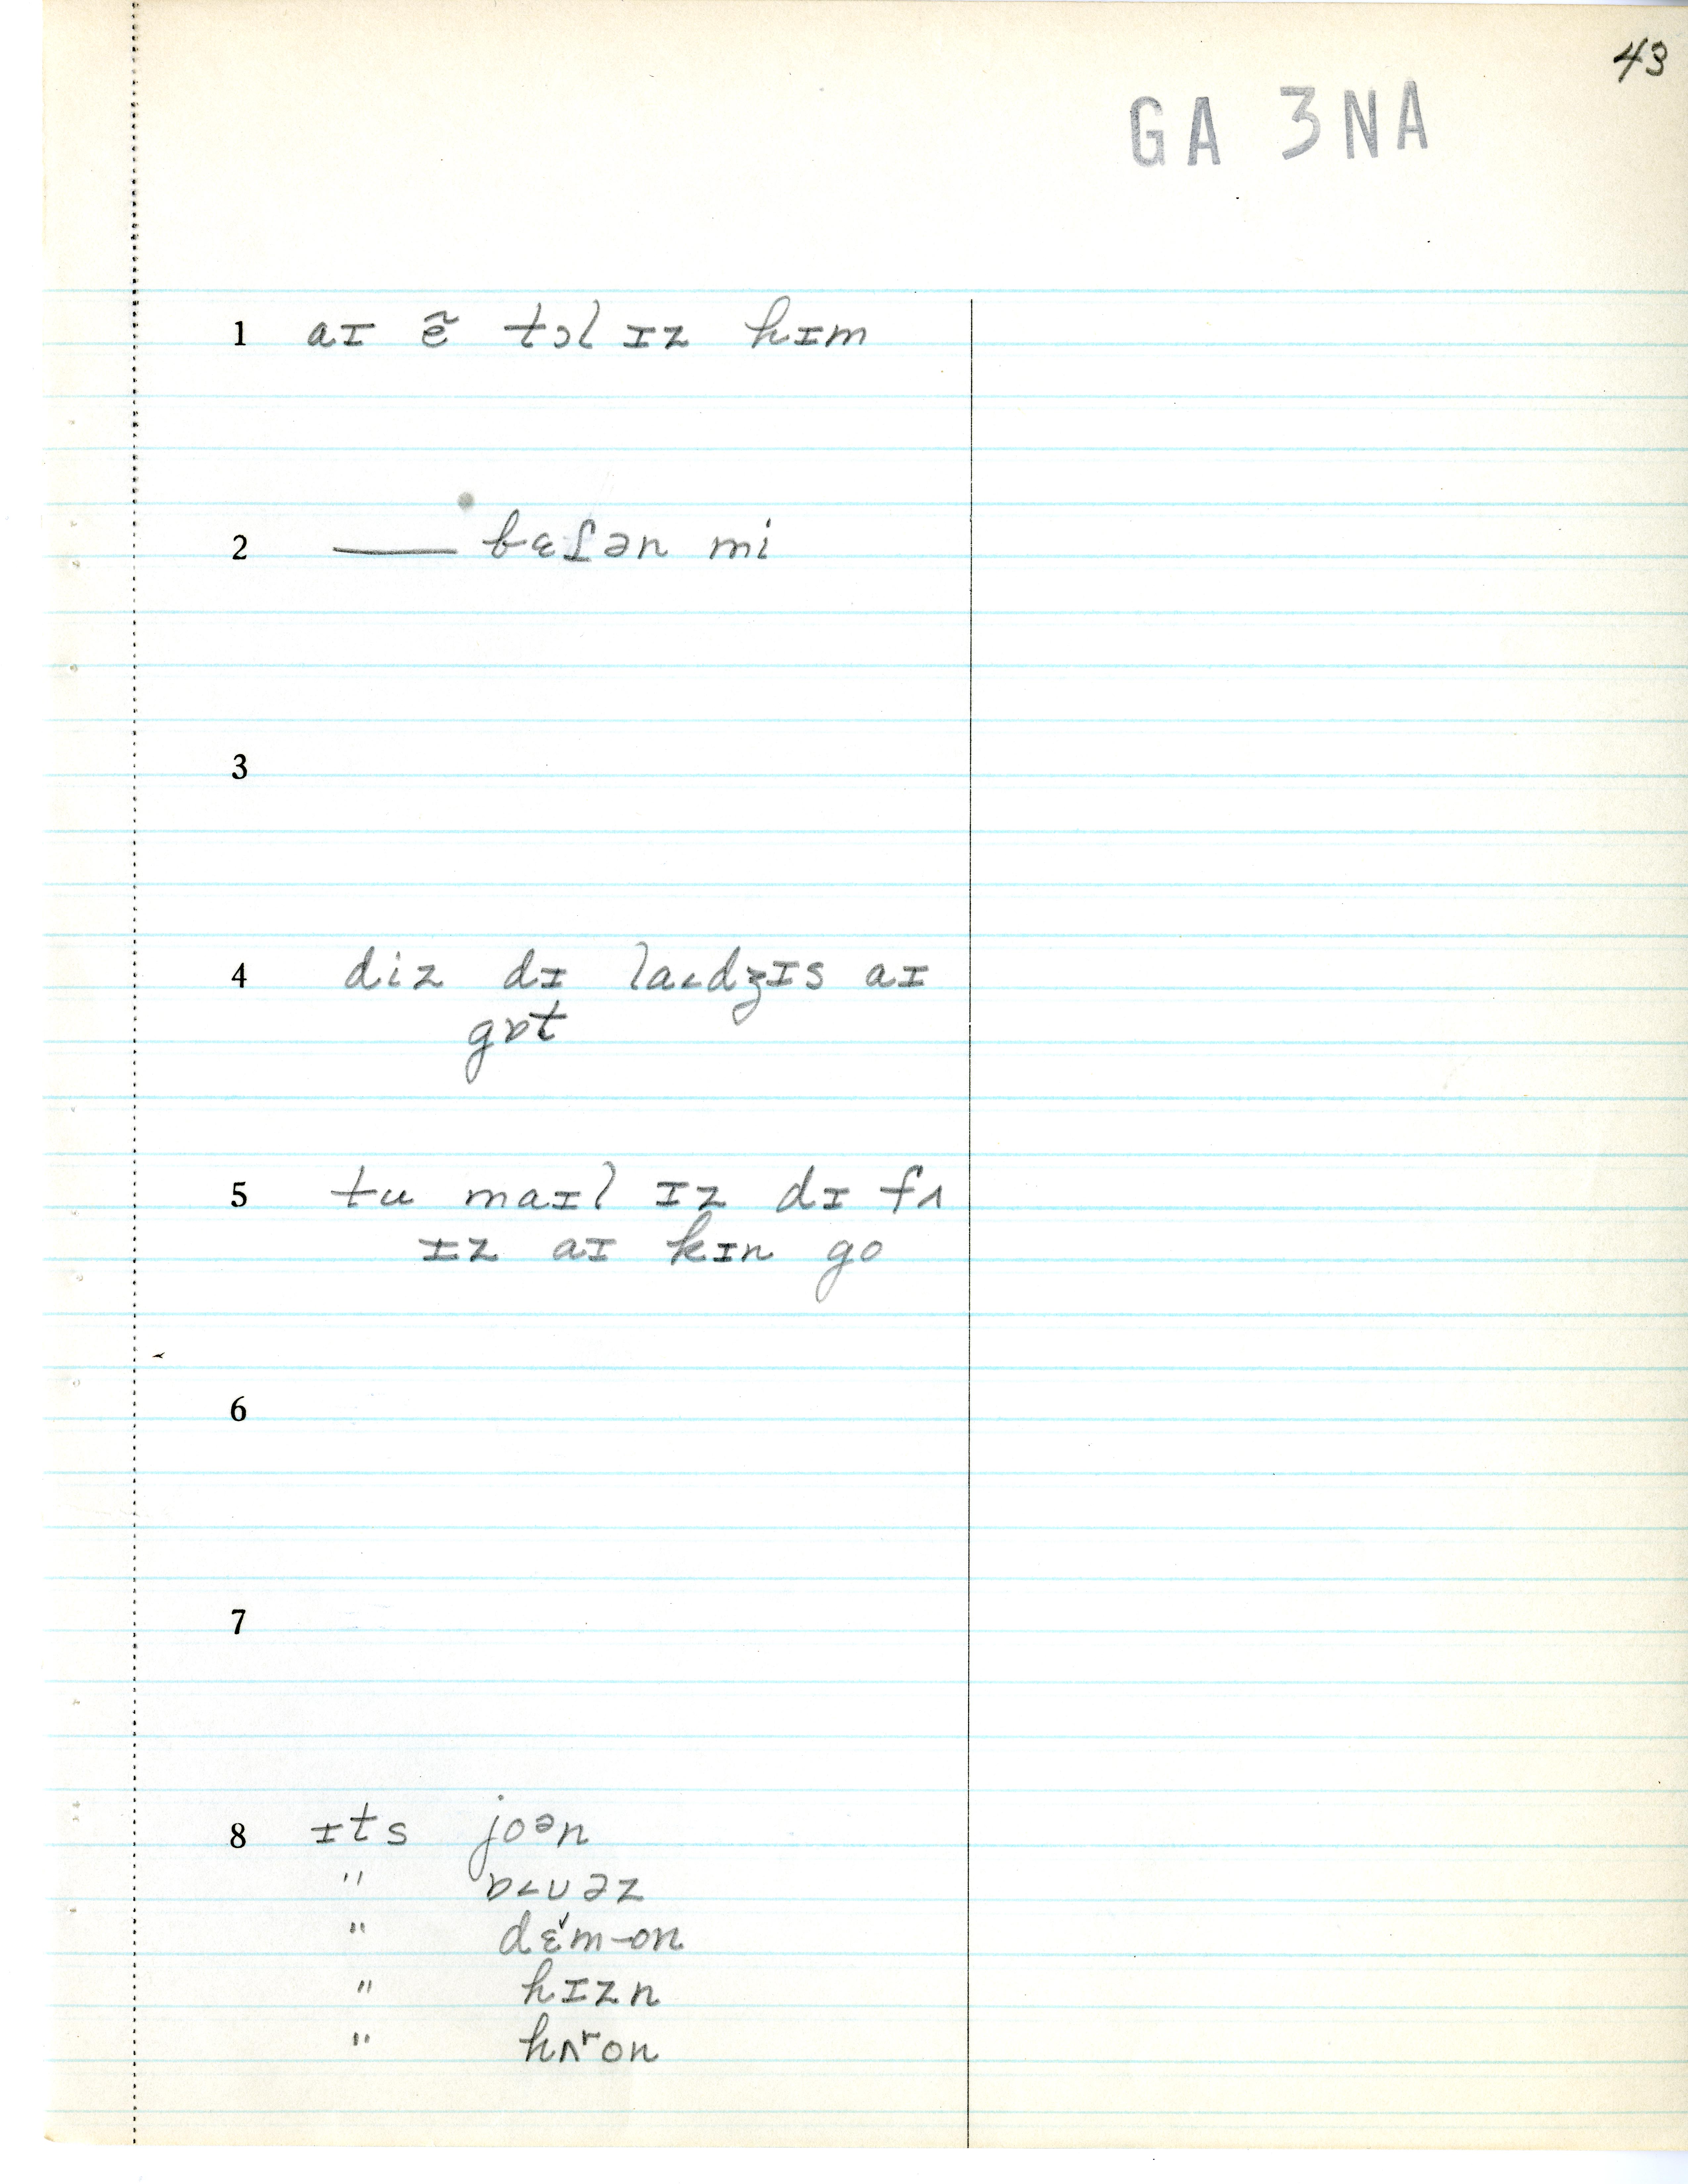 43
GA 3NA
1 aɪ ẽ tɔl ɪz hɪm
2 —— bɛʃən mi
3
4 diz dɪ la˂dʒɪs aɪ
gɒt
5 tu maɪl ɪz dɪ fʌ
ɪz aɪ kɪn go
6
7
8 ɪts joᵊn
" ɒ˂ʊəz
" dɛ˅m-on
" hɪzn
" hʌʳon